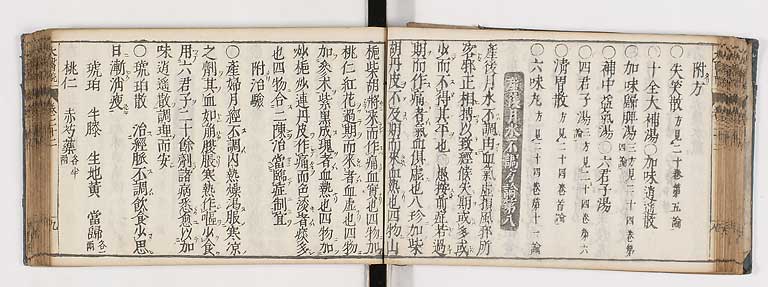 附方
○失笑散 方見二十巻第五論
○十全大補湯○加味逍遥散
○加味歸脾湯 三方見二十四巻第四論
○補中益氣湯○六君子湯
○四君子湯 方見二十四巻第六論
○清胃散 方見二十四巻首論
○六味丸 方見二十四巻第十一論
産後月水不調方論第八
産後月水不調由血氣虚損風邪所
客邪正相搏以致經候失期或多或
少而不得其平也 愚按前症若過
期而作痛者氣血俱虚也八珍加柴
胡丹皮不及期而來血熱也四物山
梔柴胡將來而作痛血實也四物加
桃仁紅花過期而來者血虚也四物
加參朮紫黒成塊者血熱也四物加
炒梔炒連丹皮作痛而色淡者痰多
也四物合二陳治當臨症制宜
附治驗
○産婦月經不調内熱燥渇服寒凉
之劑其血如崩腹脹寒熱作嘔少食
用六君子二十餘劑諸病悉愈以加
味逍遥散調理而安
○琥珀散 治經脈不調飲食少思
日漸消痩
琥珀 牛膝 生地黄 當歸 各一兩
桃仁 赤芍藥 各半兩